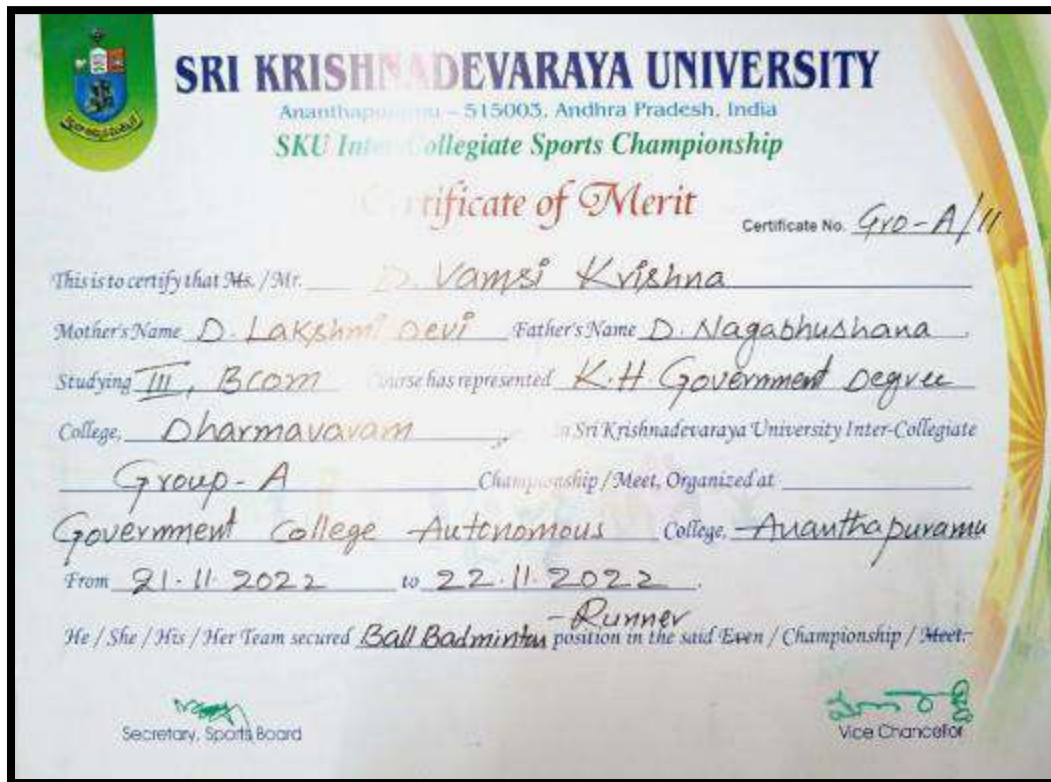 SRI KRISHNADEVARAYA UNIVERSITY
Ananthapuramu – 515003, Andhra Pradesh, India
SKU Inter Collegiate Sports Championship
Certificate of Merit
Certificate No. Gro-A/11
This is to certify that Ms. / Mr. D. Vamsi Krishna
Mother's Name D. Lakshmi Devi Father's Name D. Nagabhushana
Studying III, Bcom Course has represented K.H. Government Degree
College, Dharmavaram in Sri Krishnadevaraya University Inter-Collegiate
Group - A Championship / Meet, Organized at
Government College Autonomous College, Ananthapuramu
From 21.11.2022 to 22.11.2022.
-Runner
He / She / His / Her Team secured Ball Badminton position in the said Even / Championship / Meet.
Secretary, Sports Board
Vice Chancellor